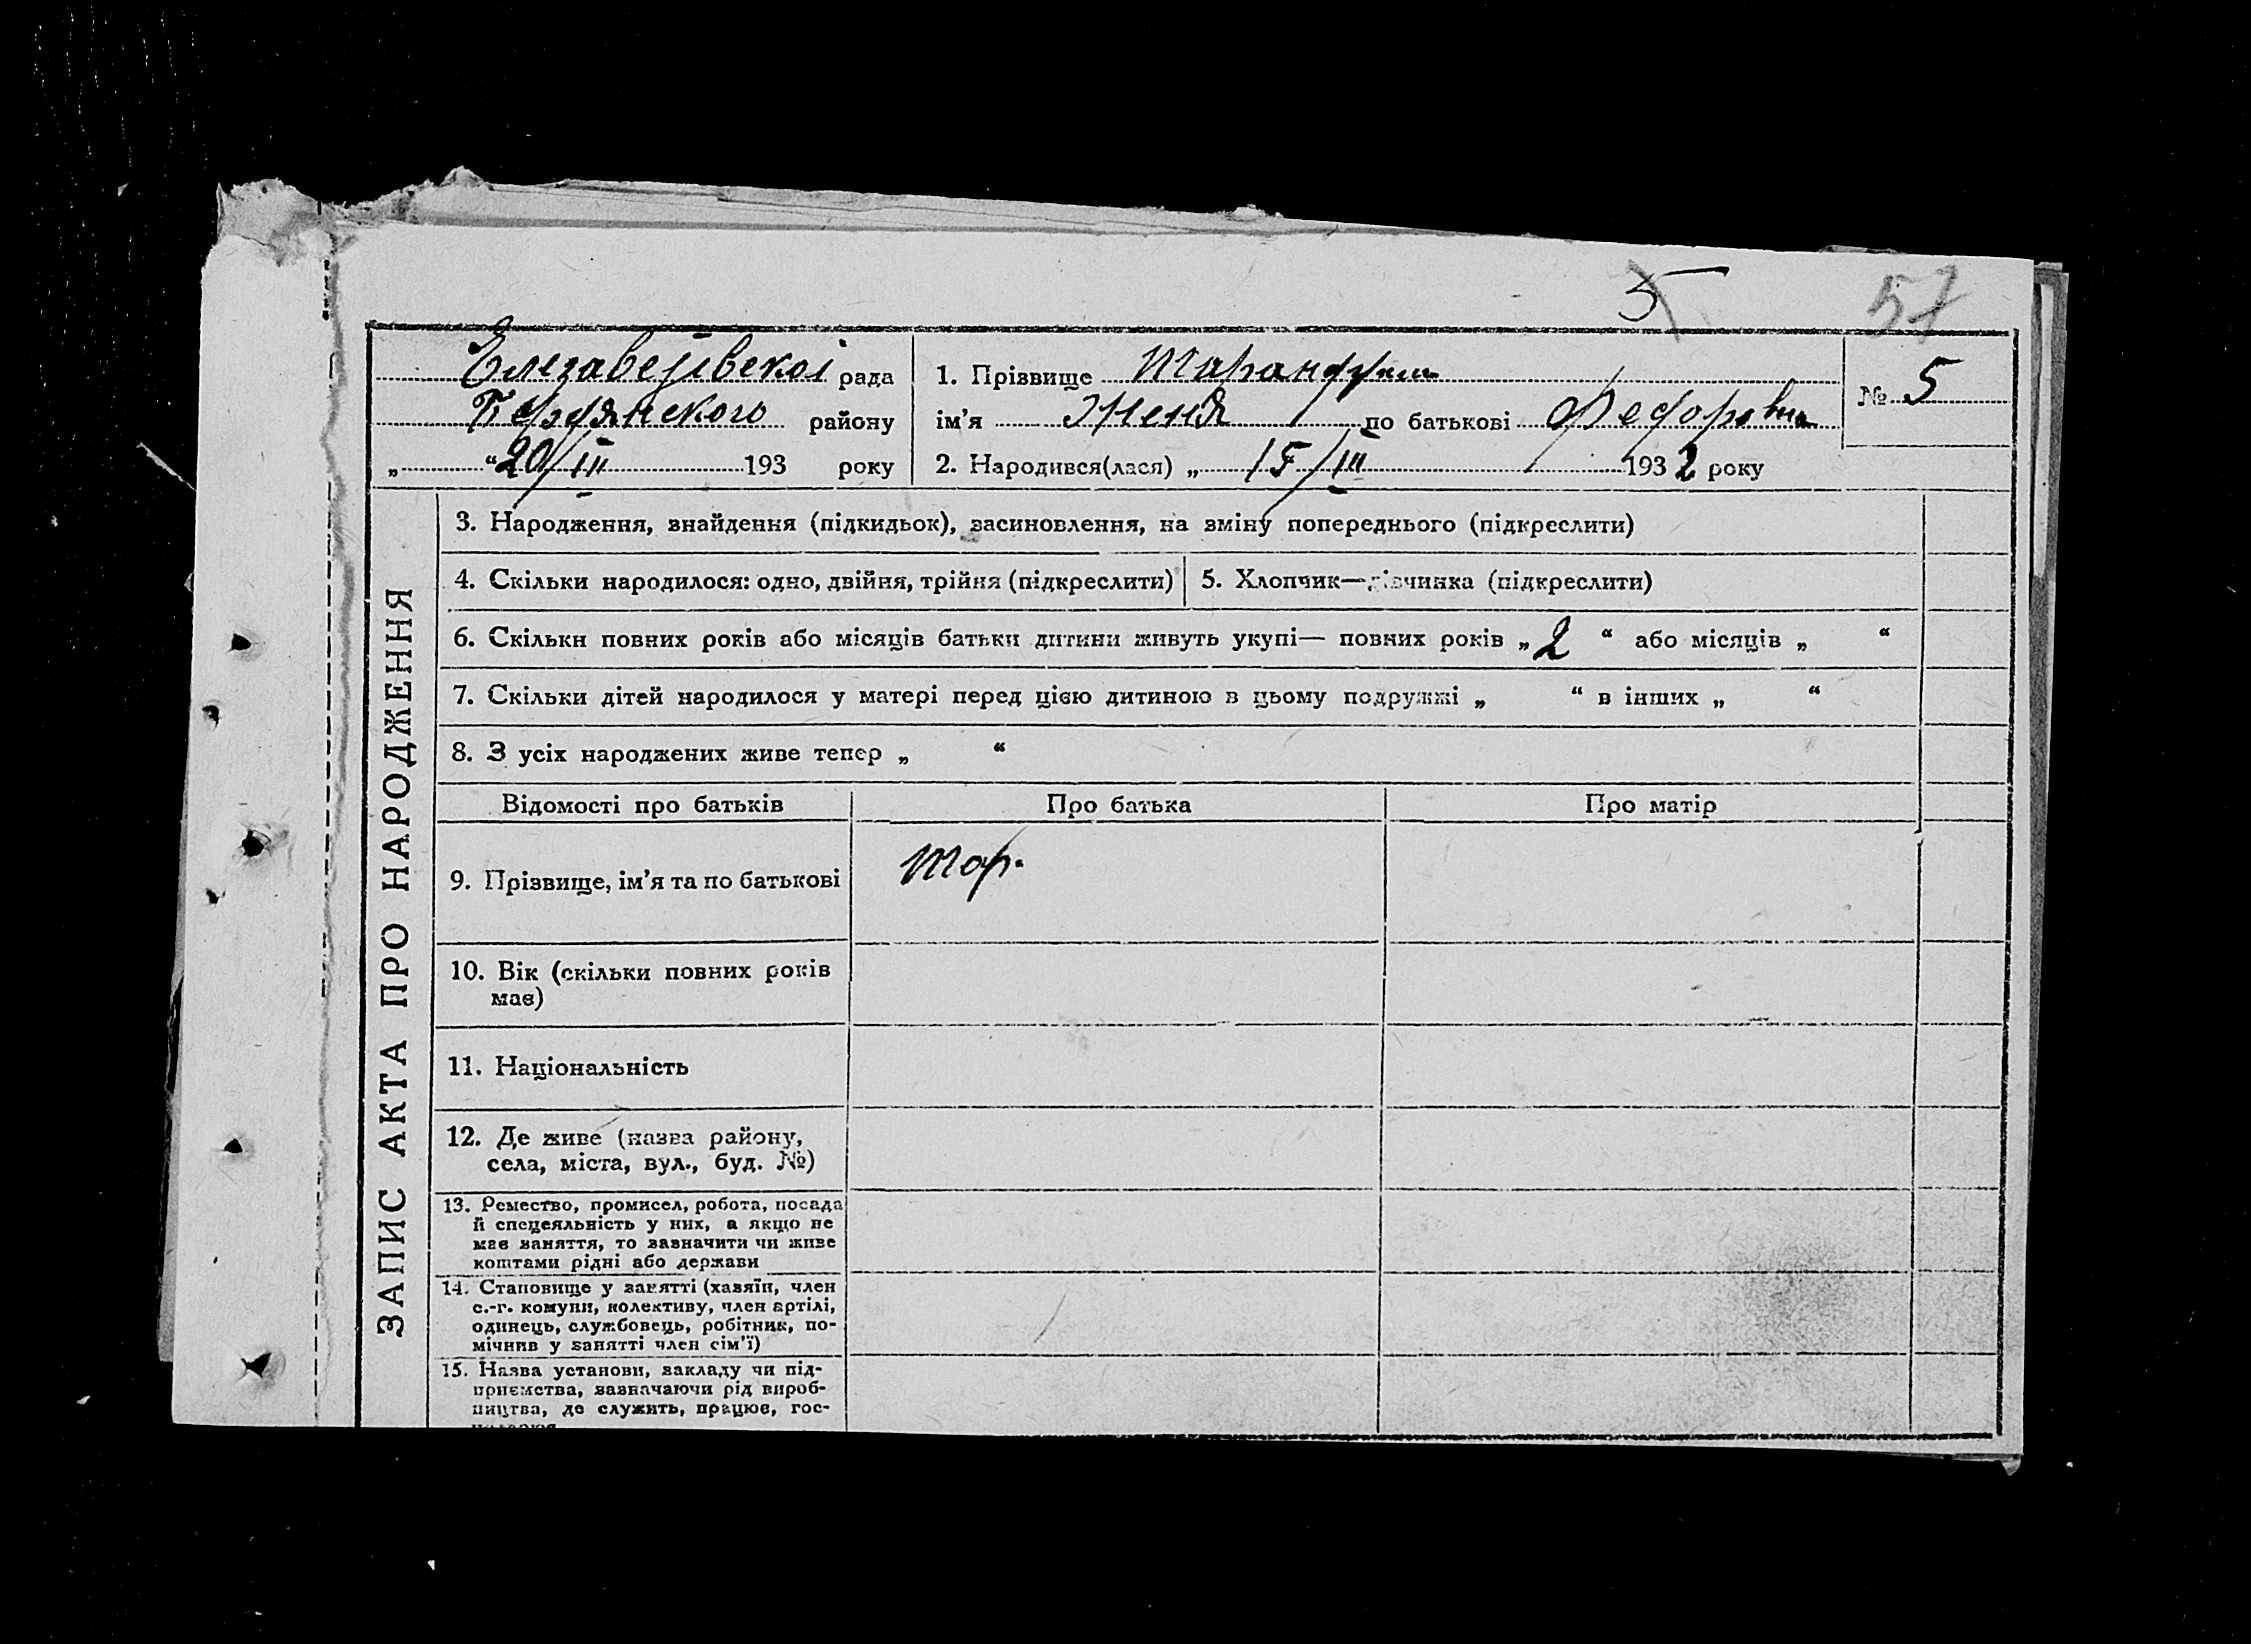 5
57
Елізаветівської рада
Бердянського району
„ “ 20/III 193 року
1. Прізвище
ім’я Женя по батькові Федоровна
№ 5
2. Народився(лася) „ 15/III 1932 року
ЗАПИС АКТА ПРО НАРОДЖЕННЯ
3. Народження, знайдення (підкидьок), засиновлення, на зміну попереднього (підкреслити)
4. Скільки народилося: одно, двійня, трійня (підкреслити)
5. Хлопчик—дівчинка (підкреслити)
6. Скільки повних років або місяців батьки дитини живуть укупі— повних років „ 2 “ або місяців „ “
7. Скільки дітей народилося у матері перед цією дитиною в цьому подружжі „ “ в інших „ “
8. З усіх народжених живе тепер „ “
Відомості про батьків
Про батька
Про матір
9. Прізвище, ім’я та по батькові
Тар.
10. Вік (скільки повних років
має)
11. Національність
12. Де живе (назва району,
села, міста, вул., буд. №)
13. Ремество, промисел, робота, посада
й спецеяльність у них, а якщо не
має заняття, то зазначити чи живе
коштами рідні або держави
14. Становище у занятті (хазяїн, член
с.-г. комуни, колективу, член артілі,
одинець, службовець, робітник, по-
мічник у занятті член сім’ї)
15. Назва установи, закладу чи під-
приємства, зазначаючи рід вироб-
ництва, де служить, працює, гос-